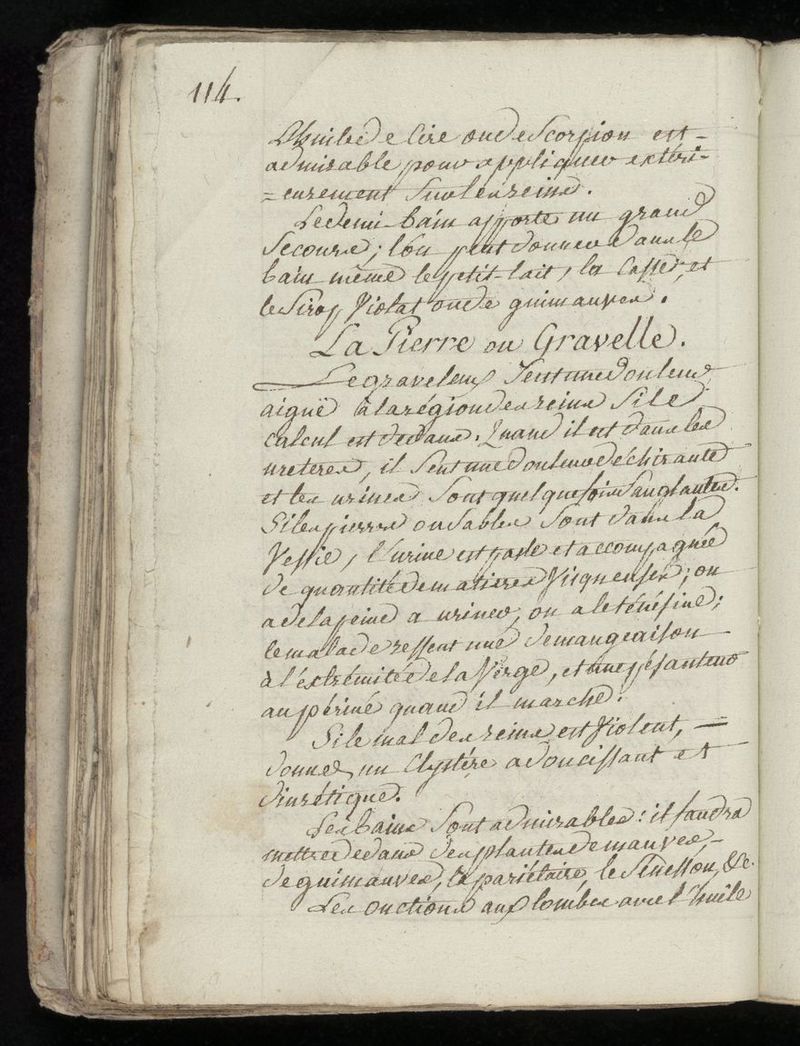 114.
L'huile de Cire ou de Scorpion est =
admirable pour appliquer extéri=
=eurement sur les reins.
Le demi-bain apporte un grand
Secours; l'on peut donner dans le
bain même le petit-lait, la Casse, et
le Sirop Violat ou de guimauves.
La Pierre ou Gravelle.
Le graveleux Sent une douleur
aiguë à la région des reins Si le
Calcul est dedans. Quand il est dans les
ureteres, il Sent une douleur déchirante
et les urines Sont quelquefois Sanglantes.
Si les pierres ou Sables Sont dans la
Vessie, l'urine est pasle et accompagnée
de quantité de matieres Visqueuses; on
a de la peine a uriner, on a le ténésme;
le malade ressent une demangeaison
à l'éxtrémité de la Verge, et une pésanteur
au périné quand il marche.
Si le mal des reins est Violent, =
donnez un Clystére adoucissant et
diurétique.
Les bains Sont admirables: il faudra
mettre dedans des plantes de mauves, -
de guimauves, la pariétaire, le Seneſſon, &c.
Les onctions aux lombes avec l'huile